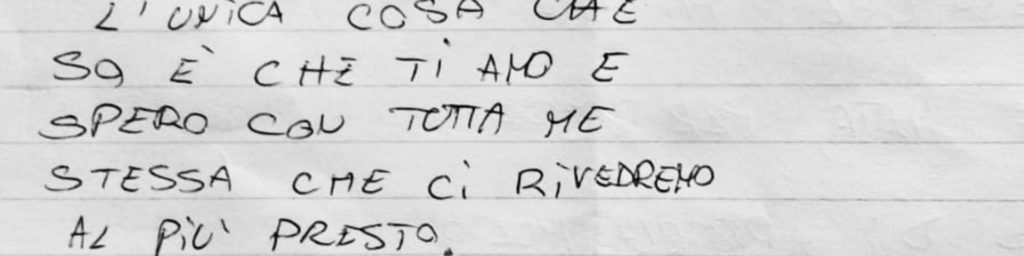 L'UNICA COSA CHE
SO È CHE TI AMO E
SPERO CON TUTTA ME
STESSA CHE CI RIVEDREMO
AL PIÙ PRESTO.